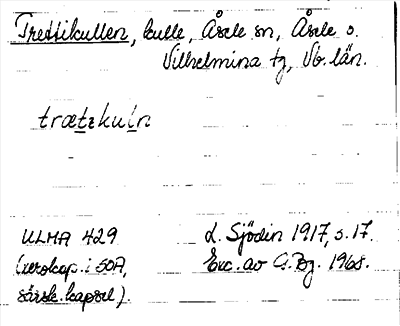 Trettikullen, kulle, Åsele sn, Åsele o.
Vilhelmina tg, Vb. län.
trætᵻkuln
ULMA 429
(xerokop. i SOA,
särsk. kapsel).
L. Sjödin 1917, s. 17.
Exc. av G. Bg. 1968.